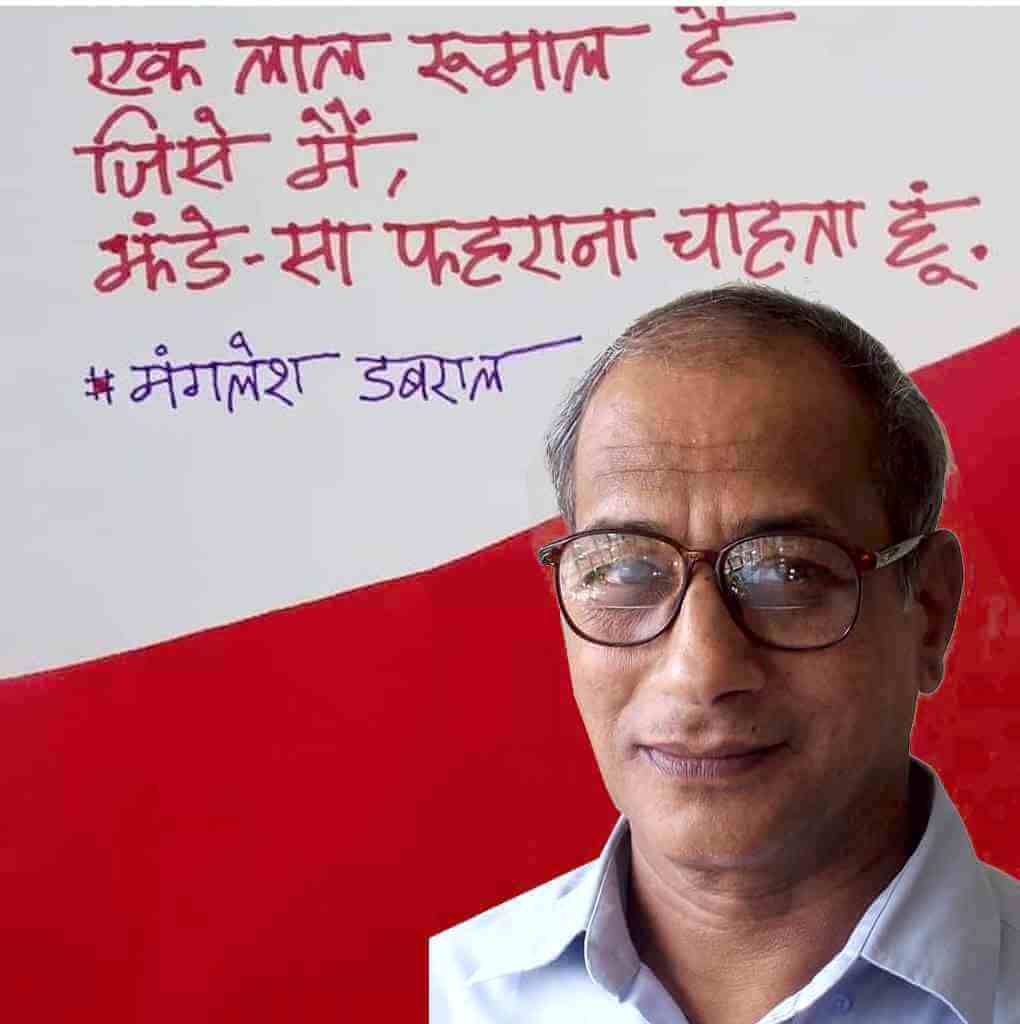 एक लाल रूमाल है
जिसे मैं,
झंडे-सा फहराना चाहता हूं.
#मंगलेश डबराल